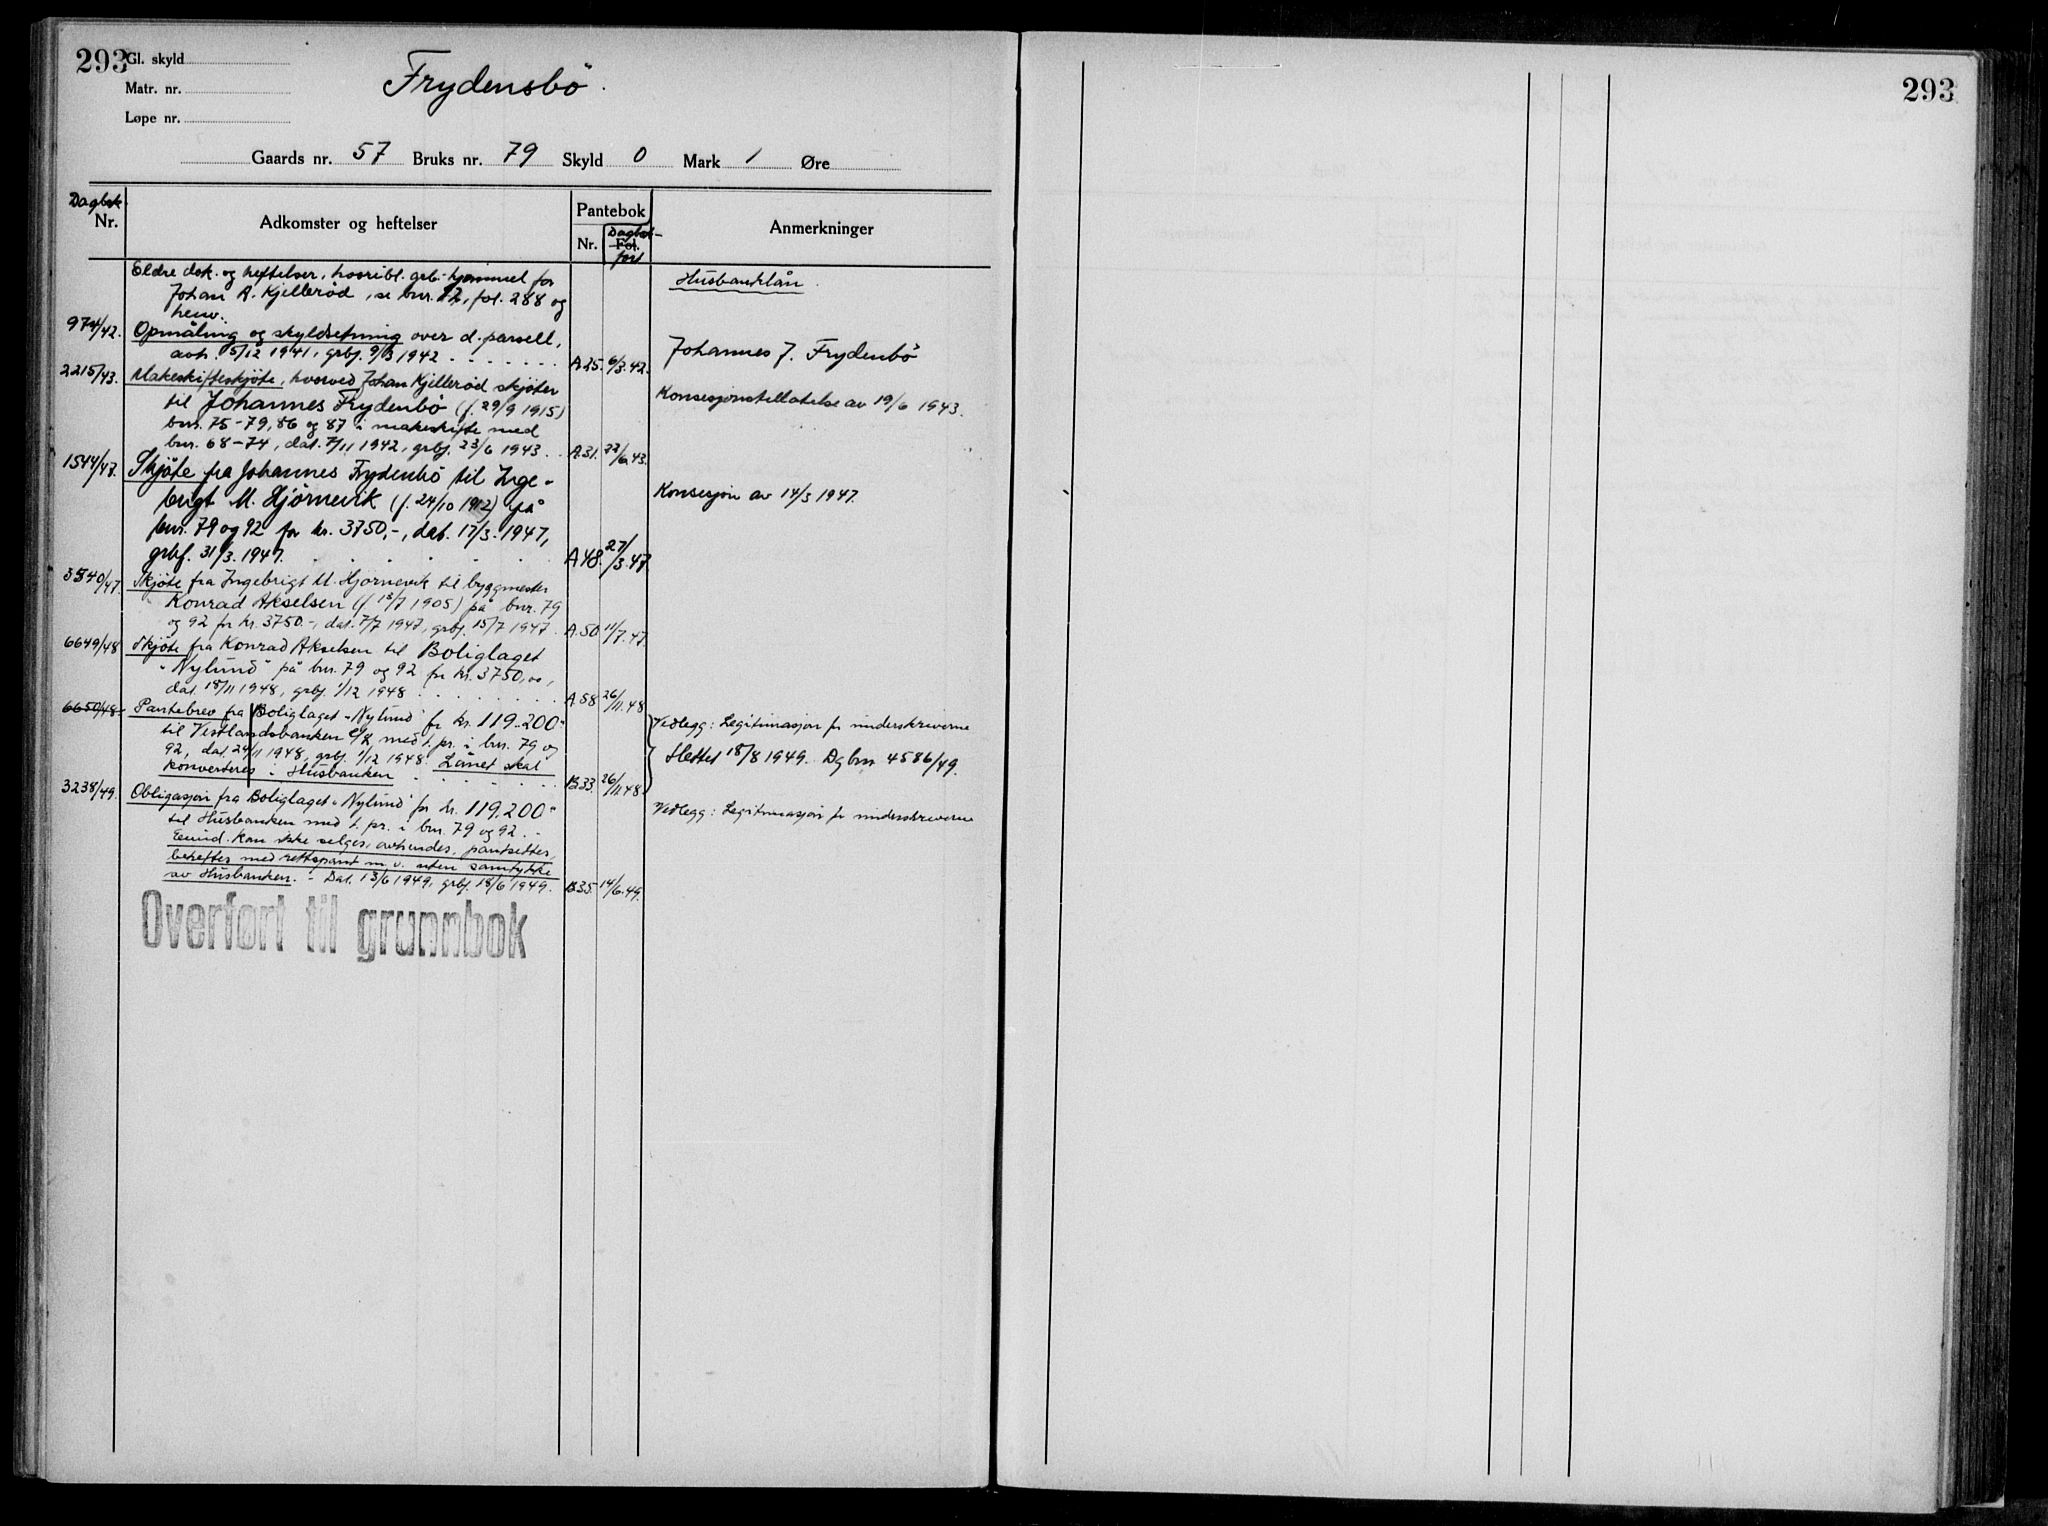 293
293
Gl. skyld
Matr. nr.
Løpe nr.
Frydensbö.
Gaards nr. 57 Bruks nr. 79 Skyld 0 Mark 1 Øre
Dagbok
Nr.
Adkomster og heftelser
Pantebok
Nr.
Fol.
Dagbok-
ført
Anmerkninger
Eldre dok. og heftelser, hvoribl. grb. hjemmel for
Johan A. Kjellerød, se bnr. 12, fol. 288 og
henv.
Husbanklån.
974/42. Opmåling og skyldsetning over d. parsell,
avh. 15/12 1941, grbf. 9/3 1942 A.25. 6/3.42.
Johannes J. Frydenbö
2215/43. Makeskifteskjöte, hvorved Johan Kjellerød skjöter
til Johannes Frydenbö (f. 29/9 1915)
bnr. 75-79, 86 og 87 i makeskifte med
bnr. 68-74, dat. 7/11 1942, grbf. 23/6 1943. A.31. 22/6.43.
Konsesjonstillatelse av 19/6 1943.
1544/47. Skjöte fra Johannes Frydenbö til Inge-
brigt M. Hjörnevik (f. 24/10 1912) på
bnr. 79 og 92 for kr. 3750,-, dat. 17/3. 1947,
grbf. 31/3. 1947. A 48. 27/3.47.
Konsesjon av 14/3 1947.
3540/47. Skjöte fra Ingebrigt M. Hjörnevik til byggmester
Konrad Akselsen (f. 18/7 1905) på bnr. 79
og 92 for kr. 3750.-, dat. 7/7 1947, grbf. 15/7 1947. A.50 11/7.47.
6649/48 Skjöte fra Konrad Akselsen til Boliglaget
"Nylund" på bnr. 79 og 92 for kr. 3750,00,
dat. 18/11 1948, grbf. 1/12 1948 A.58 26/11.48
6650/48. Pantebrev fra Boliglaget "Nylund" for kr. 119.200"
til Vestlandsbanken med 1. pr. i bnr. 79 og
92, dat. 24/11 1948, grbf. 1/12 1948. Lånet skal
konverteres i Husbanken B.33. 26/11.48
Vedlegg: Legitimasjon for underskriverne
Slettet 18/8 1949. Dgbnr 4586/49.
3238/49. Obligasjon fra Boliglaget "Nylund" for kr. 119.200"
til Husbanken med 1. pr. i bnr. 79 og 92. -
Eiend. kan ikke selges, avhendes, pantsettes,
beheftes med rettspant m.v. uten samtykke
av Husbanken. - Dat. 13/6 1949, grbf. 18/6 1949. B.35. 14/6.49.
Vedlegg: Legitimasjon for underskriverne
Overført til grunnbok